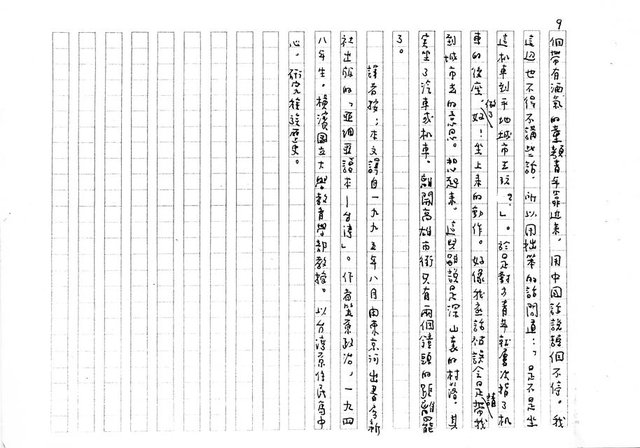 9
個帶有酒氣的童顏青年靠近來，用中國話說個不停。我
這邊也不得不講些話，所以用拙笨的話問道：「是不是坐
這机車到平地城市去玩？」。於是對方青年就屢次指了机
車的後座，做了「好！坐上來的動作。好像我這話被誤會是請帶我
到城市去的意思。想起來，這兒雖說是深山裏的村落，其
實坐了汽車或机車，離開高雄市街只有兩個鐘頭的距離而
了。
譯者按：本文譯自一九九五年八月由東京河出書房新
社出版的「亞細亞讀本—台灣」。作者笠原政治，一九四
八年生，橫濱國立大學教育學部教授。以台灣原住民為中
心，研究種族歷史。